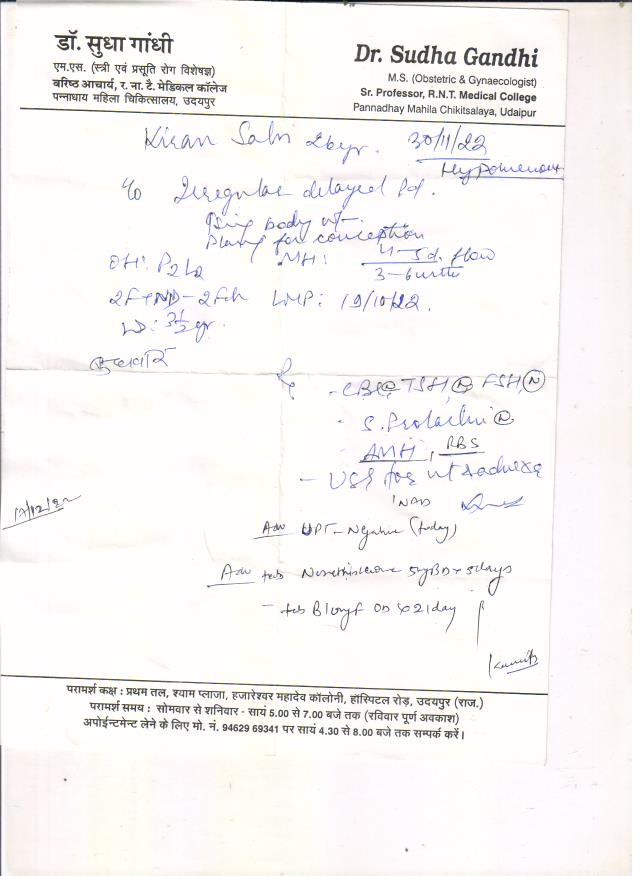 डॉ. सुधा गांधी
एम.एस. (स्त्री एवं प्रसूति रोग विशेषज्ञ)
वरिष्ठ आचार्य, र. ना. टै. मेडिकल कॉलेज
पन्नाधाय महिला चिकित्सालय, उदयपुर
Dr. Sudha Gandhi
M.S. (Obstetric & Gynaecologist)
Sr. Professor, R.N.T. Medical College
Pannadhay Mahila Chikitsalaya, Udaipur
Kiran 26yr. 30/11/22
Irregular delayed Pd.
body wt.
Plang for conception
OH: P2L2 MH: 4-5d. flow
LMP: 19/10/22.
LD: 3½ yr.
- CBC TSH, FSH, N
- S. Prolactin
- AMH, RBS
- USG for ut & adnexa
NAD
17/12/22
Adv UPT - Negative (today)
Adv tab Norethisterone 5mg BD x 5days
- tab OD x 21day
परामर्श कक्ष : प्रथम तल, श्याम प्लाजा, हजारेश्वर महादेव कॉलोनी, हॉस्पिटल रोड़, उदयपुर (राज.)
परामर्श समय : सोमवार से शनिवार - सायं 5.00 से 7.00 बजे तक (रविवार पूर्ण अवकाश)
अपोईन्टमेन्ट लेने के लिए मो. नं. 94629 69341 पर सायं 4.30 से 8.00 बजे तक सम्पर्क करें।